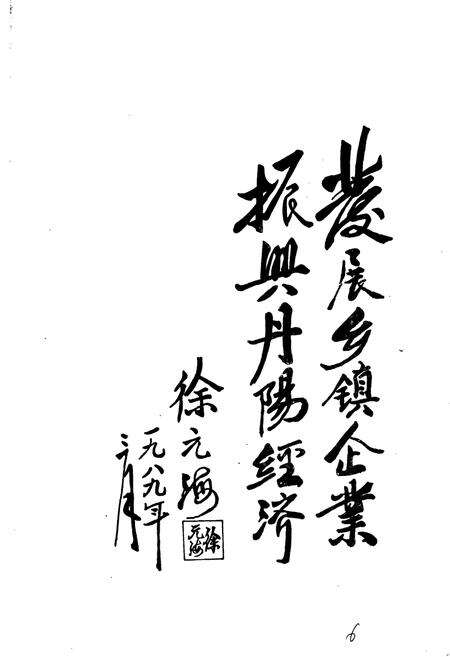 發展乡镇企業
振興丹陽經济
徐元海
一九八九年
三月
徐元海
6